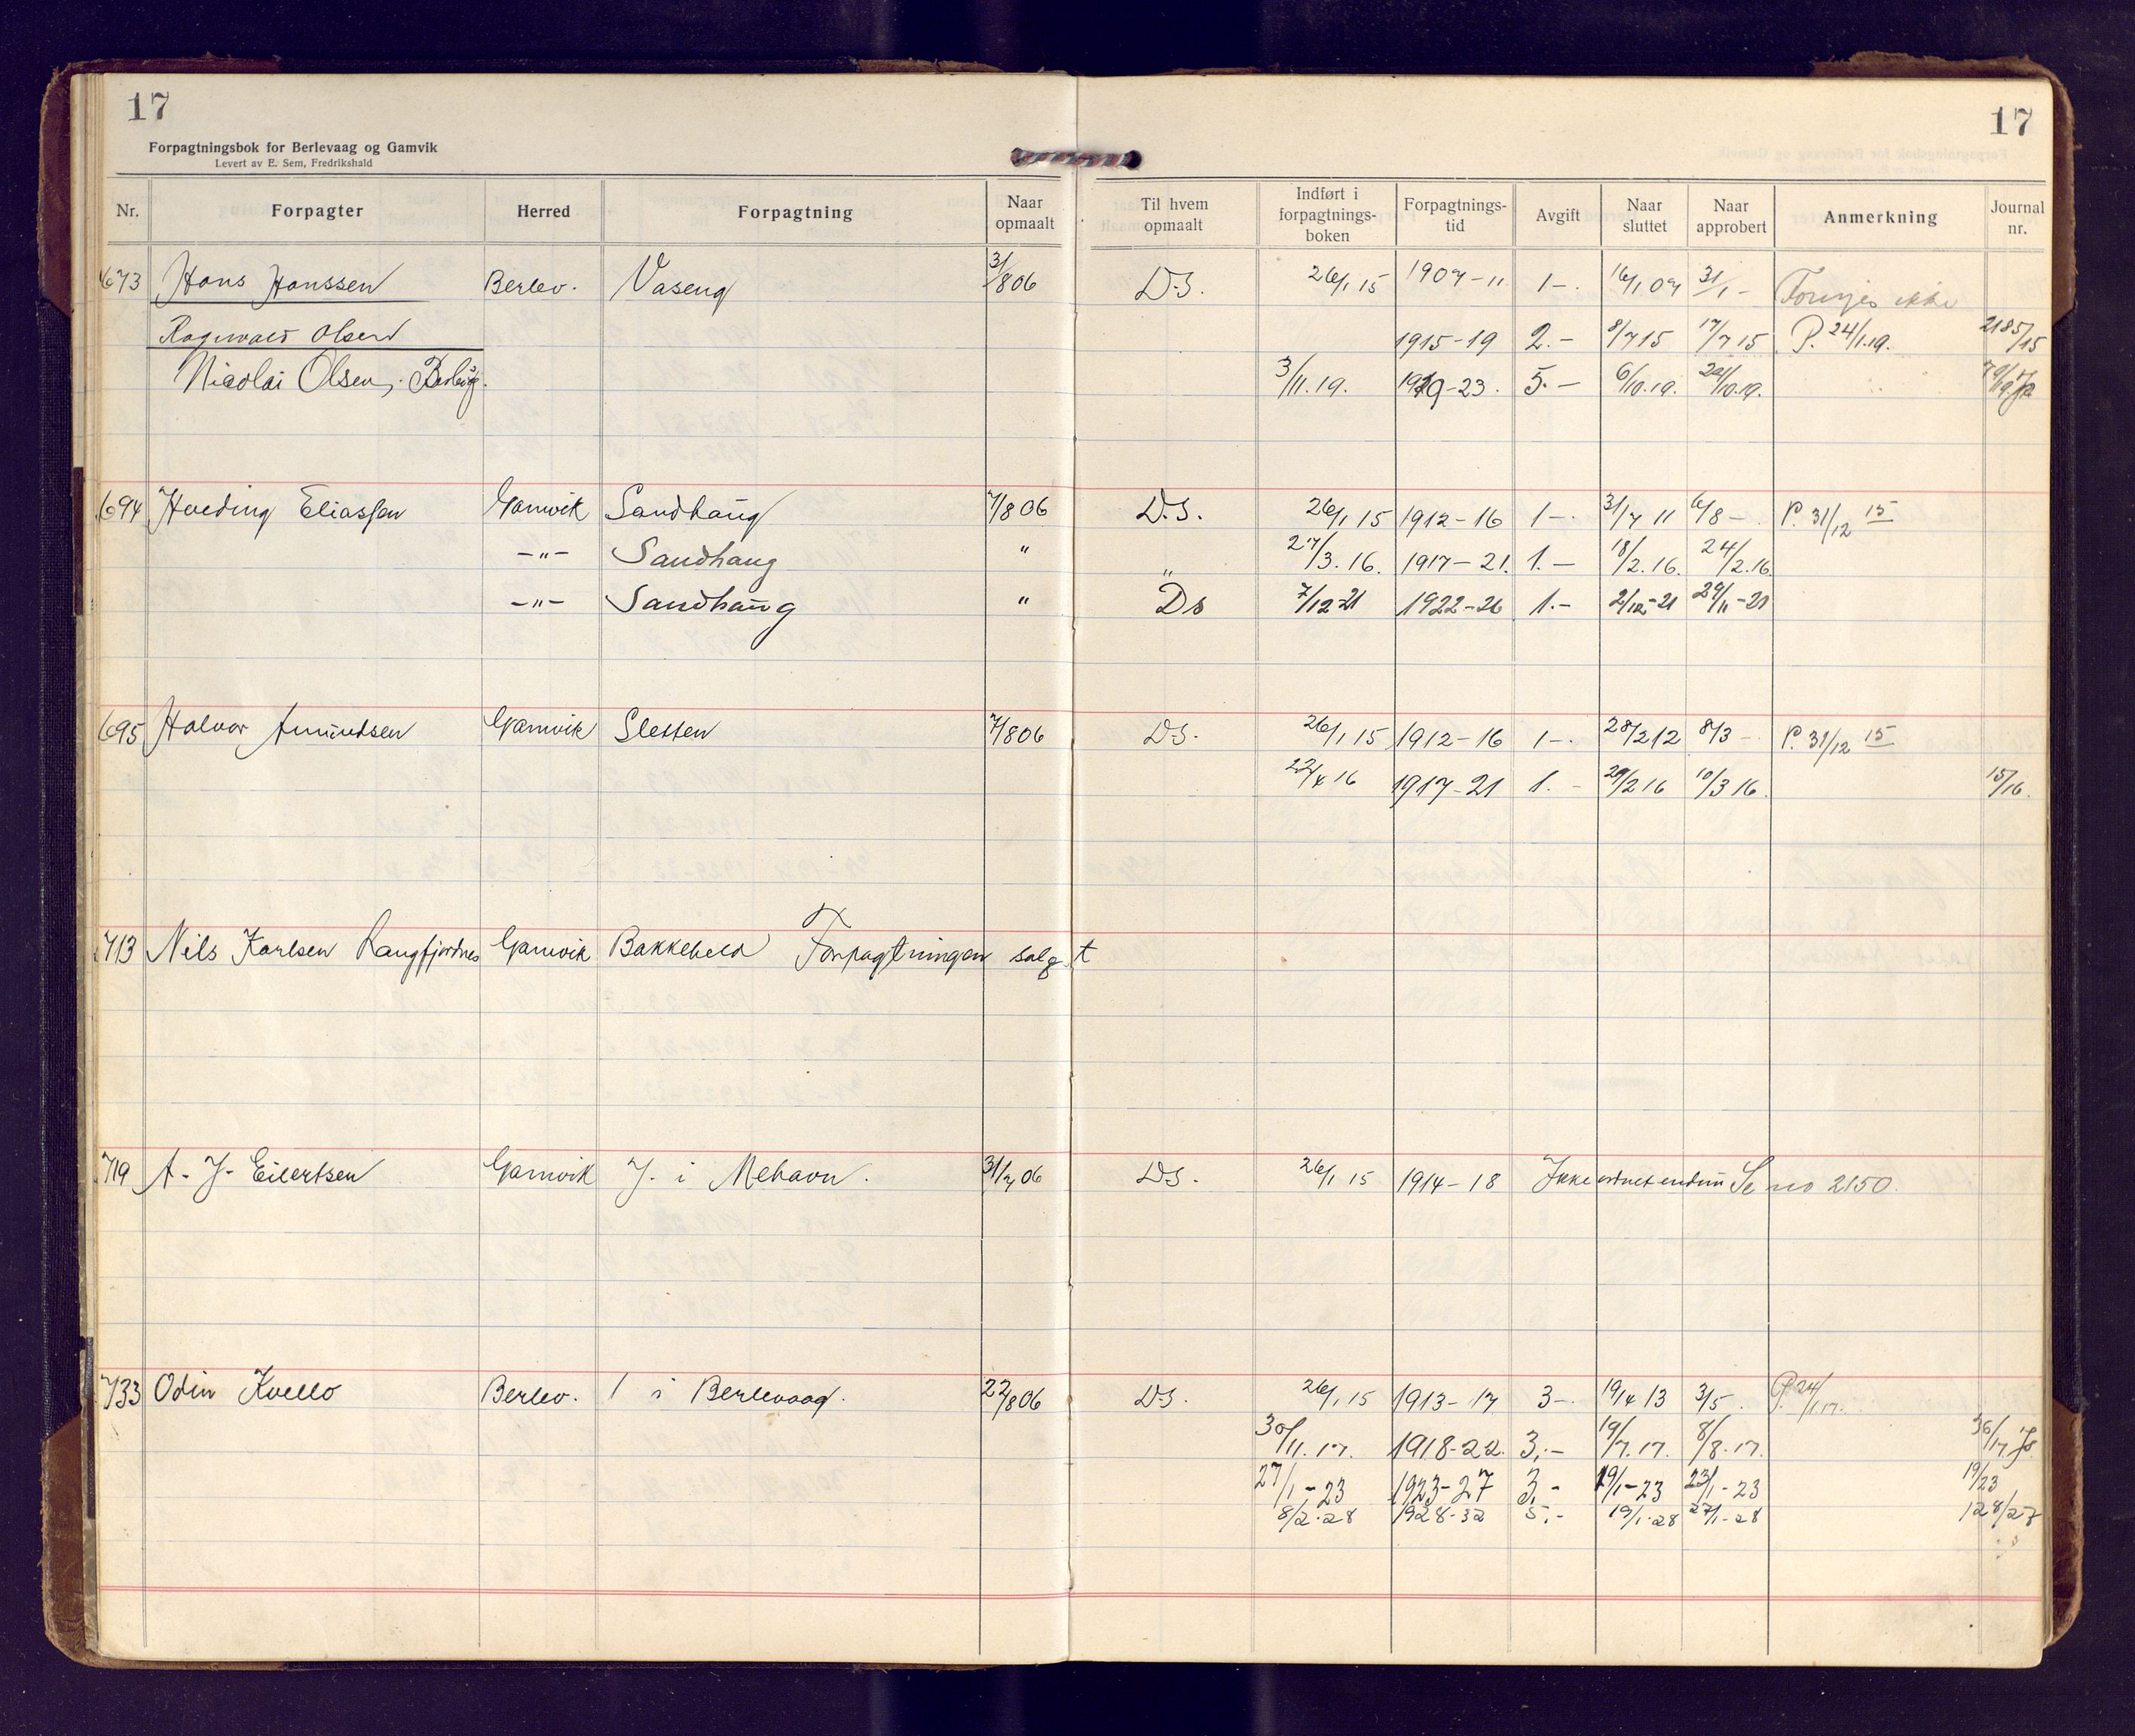 17
17
Forpagtningsbok for Berlevaag og Gamvik
Levert av E. Sem, Fredrikshald
Nr. Forpagter Herred Forpagtning Naar opmaalt Til hvem opmaalt Indført i forpagtnings-boken Forpagtnings-tid Avgift Naar sluttet Naar approbert Anmerkning Journal nr.
673 Hans Hanssen Berlev. Vaseng 3/806 D.S. 26/1 15 1907-11 1-. 16/1 07 31/1 - ikke
Ragnvald Olsen 1915-19 2.- 8/7 15 17/7 15 P. 24/1.19. 2185/15
Nicolai Olsen, 3/11.19. 1919-23. 5.- 6/10.19. /10.19.
694 Hveding Eliassen Gamvik Sandhaug 7/806 D.S. 26/1 15 1912-16 1-. 31/7 11 6/8 - P. 31/12 15
-"- Sandhaug " " 27/3.16. 1917-21. 1.- 18/2.16. 24/2.16.
-"- Sandhaug " Ds 7/12-21 1922-26 1.- 2/12-21 29/11-21
695 Halvor Amundsen Gamvik Sletten 7/806 D.S. 26/1 15 1912-16 1-. 28/2 12 8/3 - P. 31/12 15
22/4 16 1917-21 1.- 29/2 16 10/3 16. 15/16.
713 Nils Karlsen Langfjordnes Gamvik Bakkeheld Forpagtningen solgt
719 A. J. Eilertsen Gamvik J. i Mehavn. 31/ 06 D.S. 26/1 15 1914-18 Ikke ordnet endnu Se no 2150.
733 Odin Kvello Berlev. 1 i Berlevaag. 22/806 D.S. 26/1 15 1913-17 3-. 19/4 13 3/5. P. 24/1.17.
30/11.17. 1918-22. 3,- 19/7.17. 8/8.17. 36/17
27/1-23 1923-27 3,- 19/1-23 23/1-23 19/23
8/2-28 1928-32 5,- 19/1-28 27/1-28 128/27